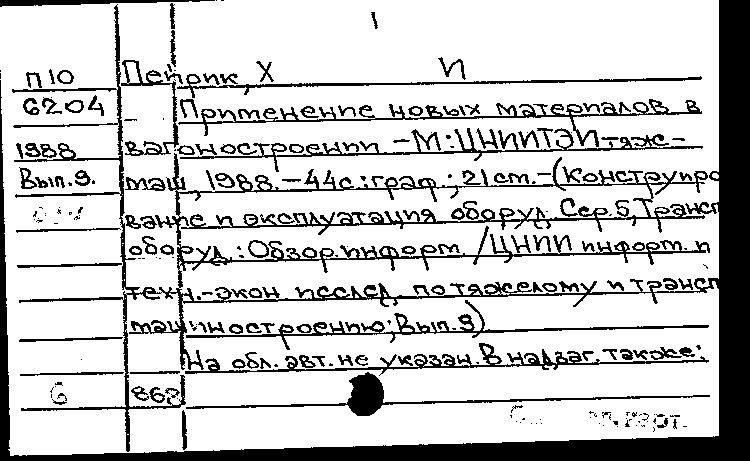 1
П10 Петрик, Х И
6204 Применение новых материалов в
1988 вагоностроении - М: ЦНИИТЭИтяж-
Вып.9. маш, 1988. - 44с: граф.; 21 см. - (Конструиро
вание и эксплуатация оборуд. Сер. 5, Трансп
оборуд.: Обзор. информ. / ЦНИИ информ. и
техн.-экон. исслед. по тяжелому и трансп
машиностроению; Вып. 9)
На обл. авт. не указан. В надзаг. также:
6 868